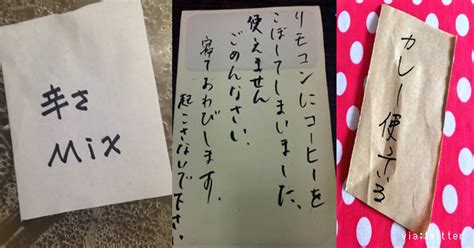 辛さ
Mix
リモコンにコーヒーを
こぼしてしまいました、
使えません
ごめんなさい、
寝ておわびします。
起こさないで下さい。
カレー
via:twitter